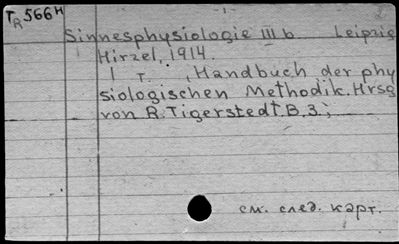 TR566H
Sinnesphysiologie III b Leipzig
Hirzel, 1914.
1 т. , Handbuch der phy
siologischen Methodik. Hrsg
von R. Tigerstedt. B. 3.;
см. след. карт.